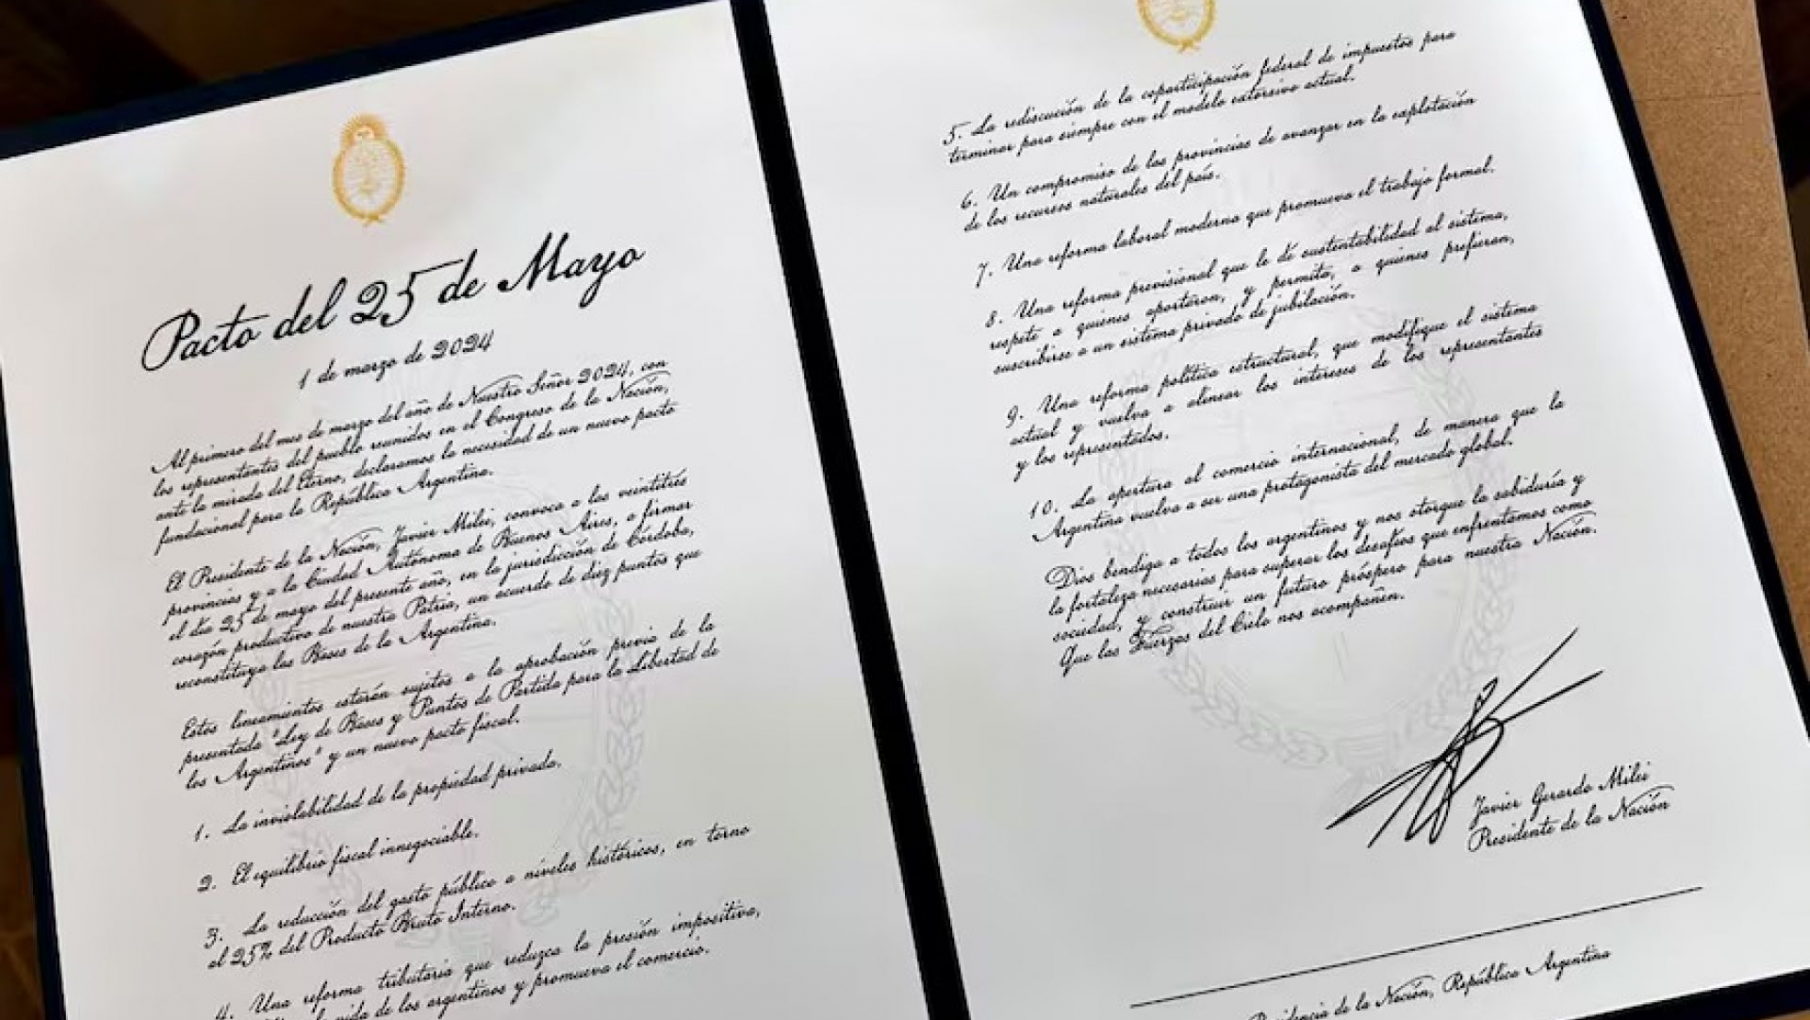 Pacto del 25 de Mayo
1 de marzo de 2024
Al primero del mes de marzo del año de Nuestro Señor 2024, con
los representantes del pueblo reunidos en el Congreso de la Nación,
ante la mirada del Eterno, declaramos la necesidad de un nuevo pacto
fundacional para la República Argentina.
El Presidente de la Nación, Javier Milei, convoca a las veintitrés
provincias y a la Ciudad Autónoma de Buenos Aires, a firmar
el día 25 de mayo del presente año, en la jurisdicción de Córdoba,
corazón productivo de nuestra Patria, un acuerdo de diez puntos que
reconstituya las Bases de la Argentina.
Estos lineamientos estarán sujetos a la aprobación previa de la
presentada "Ley de Bases y Puntos de Partida para la Libertad de
los Argentinos" y un nuevo pacto fiscal.
1. La inviolabilidad de la propiedad privada.
2. El equilibrio fiscal innegociable.
3. La reducción del gasto público a niveles históricos, en torno
al 25% del Producto Bruto Interno.
4. Una reforma tributaria que reduzca la presión impositiva,
vida de los argentinos y promueva el comercio.
5. La rediscución de la coparticipación federal de impuestos para
terminar para siempre con el modelo extorsivo actual.
6. Un compromiso de las provincias de avanzar en la explotación
de los recursos naturales del país.
7. Una reforma laboral moderna que promueva el trabajo formal.
8. Una reforma previsional que le dé sustentabilidad al sistema,
respete a quienes aportaron, y permita, a quienes prefieran,
suscribirse a un sistema privado de jubilación.
9. Una reforma política estructural, que modifique el sistema
actual y vuelva a alinear los intereses de los representantes
y los representados.
10. La apertura al comercio internacional, de manera que la
Argentina vuelva a ser una protagonista del mercado global.
Dios bendiga a todos los argentinos y nos otorgue la sabiduría y
la fortaleza necesarias para superar los desafíos que enfrentamos como
sociedad, y construir un futuro próspero para nuestra Nación.
Que las Fuerzas del Cielo nos acompañen.
Javier Gerardo Milei
Presidente de la Nación
de la Nación, República Argentina